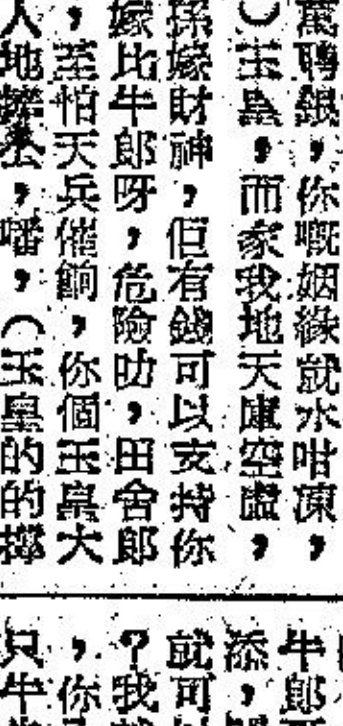 萬聘銀，你嘅姻緣就水咁凍，
（玉皇，而家我地天庭空虛，
孫嫁財神，佢有錢可以支持你
嫁比牛郎呀，危險叻，田舍郎
，至怕天兵催餉，你個玉皇大
人地攆公，噃，（玉皇的的攆
牛郎
添，
就可
？我
，你
只牛